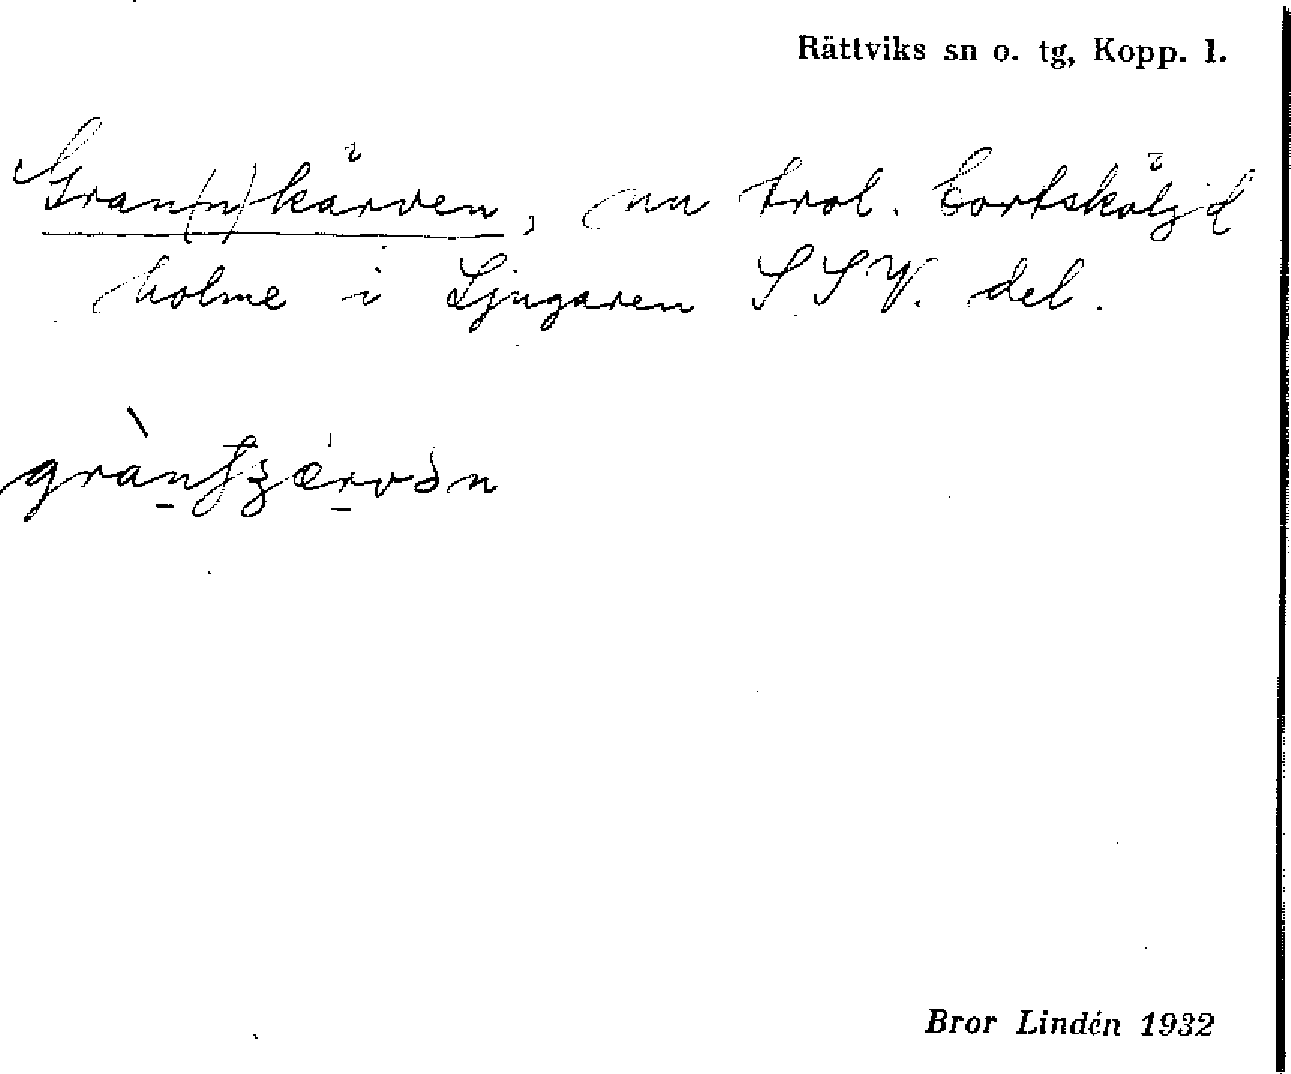 Rättviks sn o. tg, Kopp. l.
Gran(n)kärven, nu trol. bortsköljd
holme i Ljugaren S SV. del.
Bror Lindén 1932